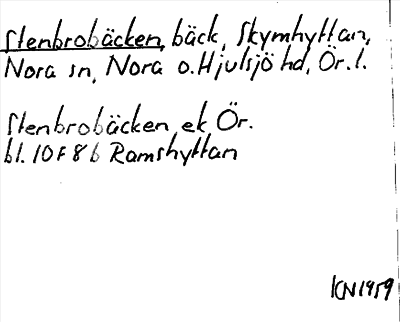 Stenbrobäcken, bäck, Skymhyttan,
Nora sn, Nora o. Hjulsjö hd, Ör. l.
Stenbrobäcken, ek, Ör.
bl. 10F 8b Ramshyttan
KN 1959